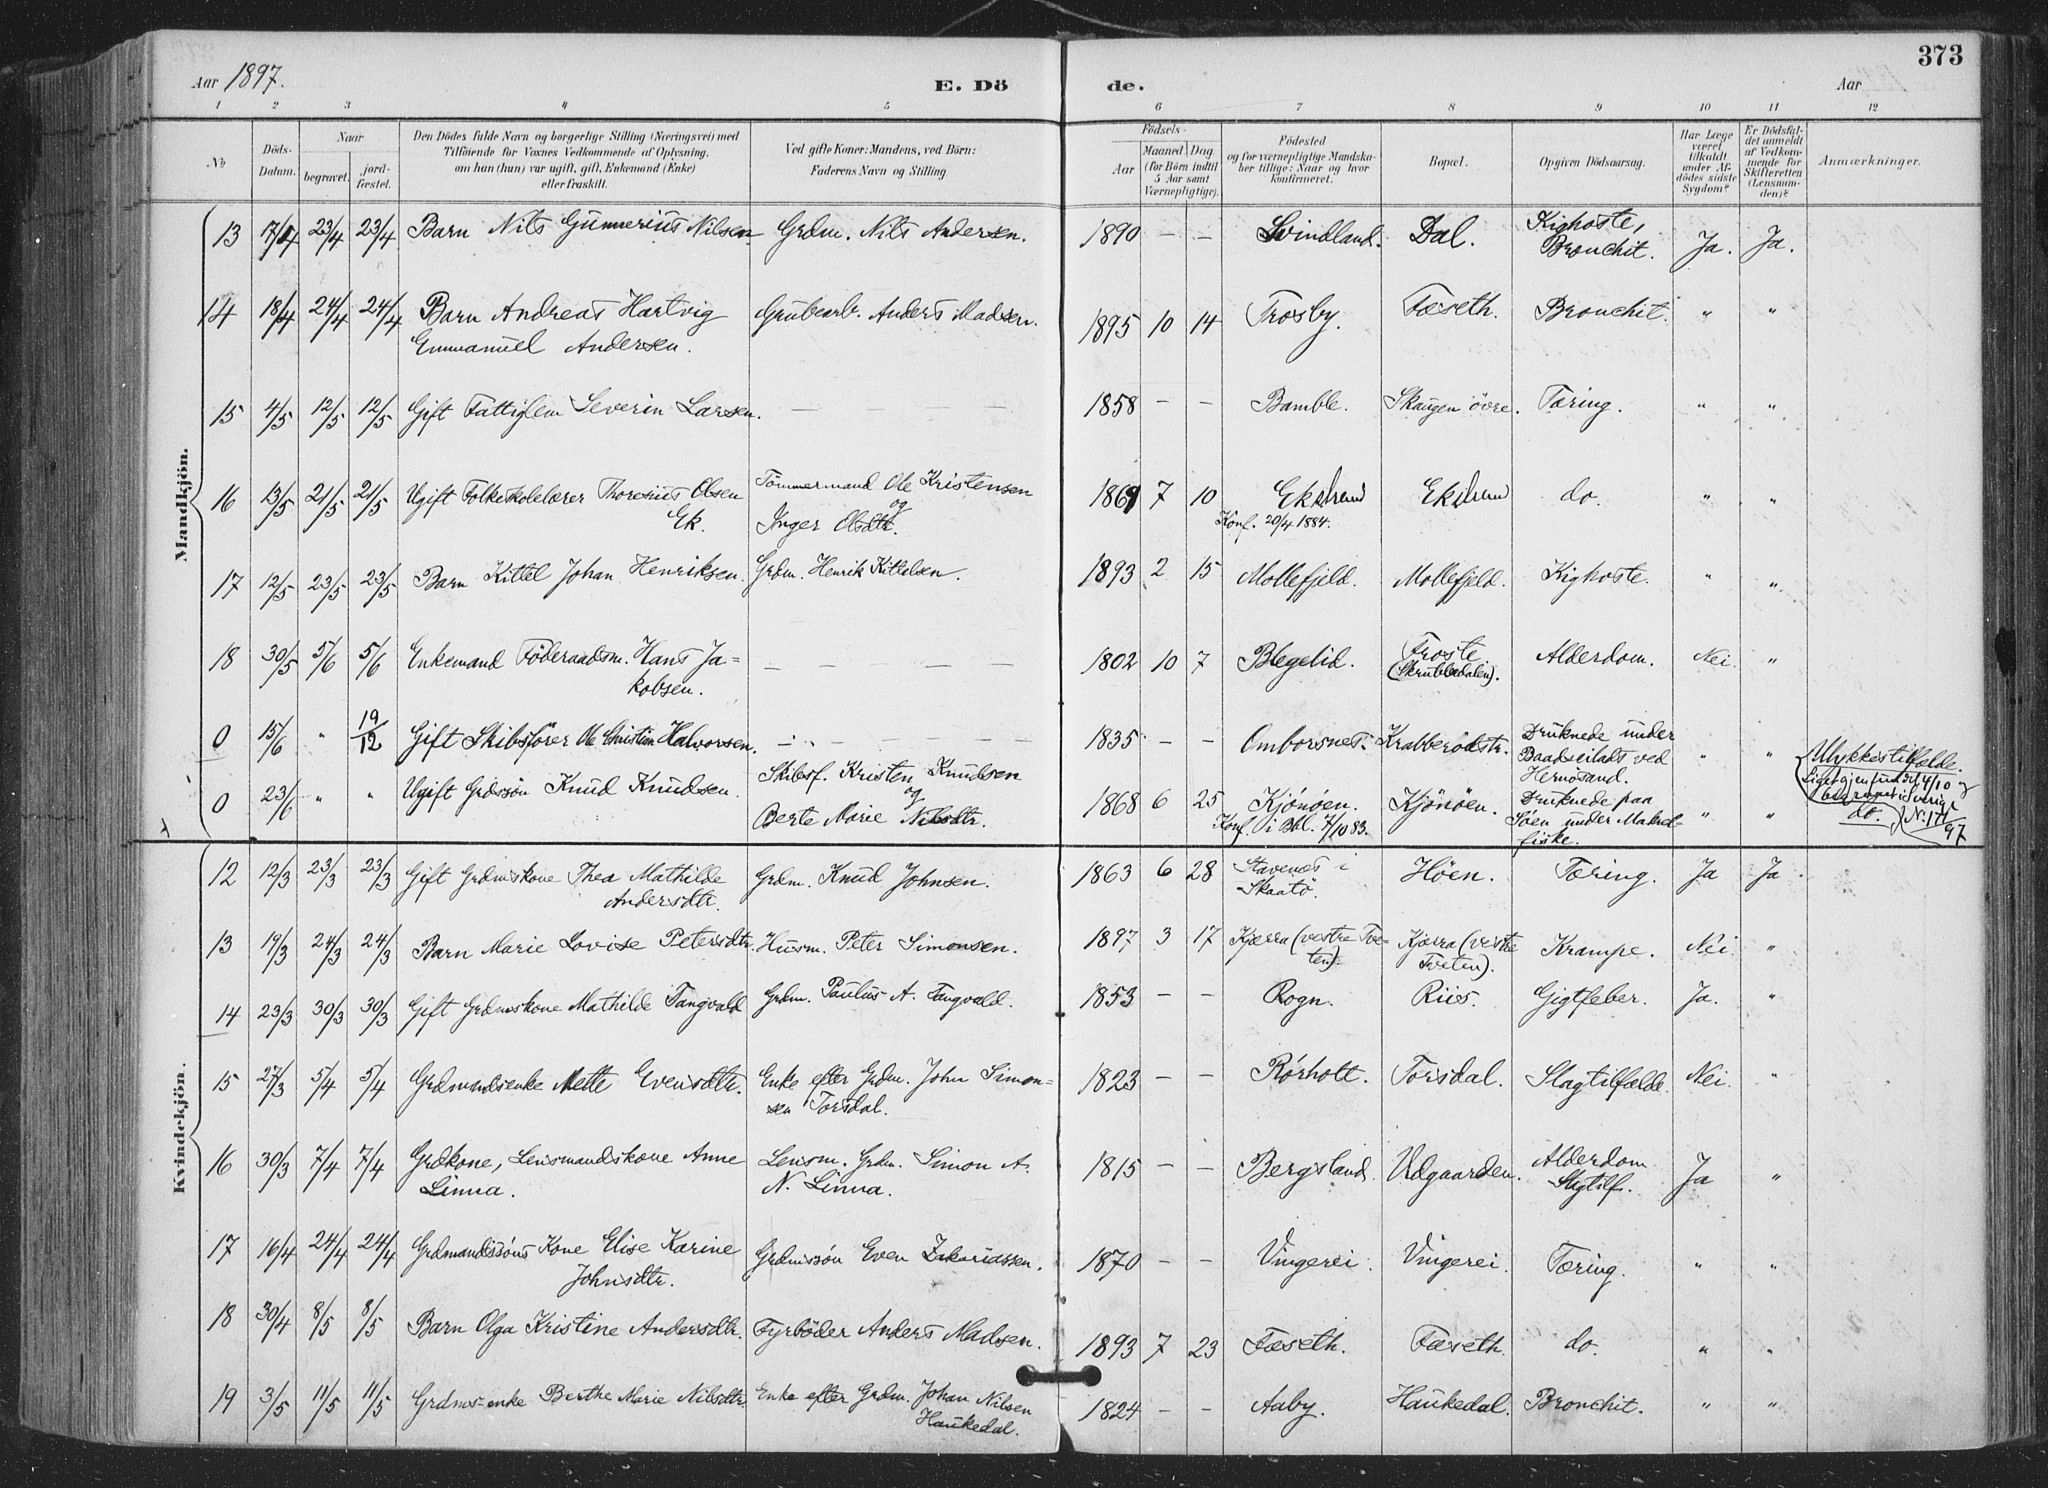 373
Aar 1897.
E. Dö
de.
Aar
1 2 3 4 5 6 7 8 9 10 11 12
No
Döds-
Datum.
Naar
begravet.
jord-
fæstet.
Den Dödes fulde Navn og borgerlige Stilling (Næringsvei) med
Tilföiende for Voxnes Vedkommende af Oplysning,
om han (hun) var ugift, gift, Enkemand (Enke)
eller fraskilt.
Ved gifte Koner: Mandens, ved Börn:
Faderens Navn og Stilling.
Födsels-
Aar
Maaned
Dag
(for Börn indtil
5 Aar samt
Værnepligtige).
Födested
og for værnepligtige Mandska-
ber tillige: Naar og hvor
konfirmeret.
Bopæl.
Opgiven Dödsaarsag.
Har Læge
været
tilkaldt
under Af-
dödes sidste
Sygdom?
Er Dödsfal-
det anmeldt
af Vedkom-
mende for
Skifteretten
(Lensman-
den)?
Anmærkninger.
Mandkjön.
13 17/4 23/4 23/4 Barn Nils Gunnerius Nilsen Grdm. Nils Andersen. 1890 — — Svindland. Dal. Kighoste, Bronchit. Ja. Ja.
14 18/4 24/4 24/4 Barn Andreas Hartvig Grubearb. Anders Madsen. 1895 10 14 Trosby. Fæseth. Bronchit. " "
Emmanuel Andersen.
15 4/5 12/5 12/5 Gift Fattiglem Severin Larsen. — — — 1858 — — Bamble. Skaugen övre. Tæring. " "
16 13/5 21/5 21/5 Ugift Folkeskolelærer Thoresius Olsen Tömmermand Ole Kristensen 1869 7 10 Ekstrand Ekstrand do. " "
Ek. og Inger Olsdtr. Konf. 20/4 1884.
17 12/5 23/5 23/5 Barn Kittel Johan Henriksen. Grdm. Henrik Kittelsen. 1893 2 15 Mollefjeld. Mollefjeld. Kighoste. " "
18 30/5 5/6 5/6 Enkemand Föderaadsm. Hans Ja- — — — — 1802 10 7 Blegelid. Froste Alderdom. Nei. "
kobsen. (Skrubbedalen).
0 15/6 " 19/12 Gift Skibsförer Ole Christian Halvorsen. — — — 1835 — — Omborsnes. Krabberödstr. Druknede under " " Ulykkestilfælde.
Baadseilads ved
Hernösand.
Liget gjenfundet 4/10 og
begravet i Sverige
0 23/6 " " Ugift Grdssön Knud Knudsen. Skibsf. Kristen Knudsen 1868 6 25 Kjönöen. Kjönöen. Druknede paa " " do.
og Berte Marie Nilsdtr. Konf. i Bbl. 7/10 83. Söen under Makrel-
fiske.
97
Kvindekjön.
12 12/3 23/3 23/3 Gift Grdmskone Thea Mathilde Grdm. Knud Johnsen. 1863 6 28 Stavenes i Höen. Tæring. Ja Ja.
Andersdtr. Skaatö.
13 19/3 24/3 24/3 Barn Marie Lovise Petersdtr. Husm. Peter Simonsen. 1897 3 17 Kjærra (vestre Tve- Kjærra (vestre Krampe. Nei. "
ten). Tveten).
14 23/3 30/3 30/3 Gift Grdmskone Mathilde Tangvald Grdm. Paulus A. Tangvald. 1853 — — Rogn. Riis. Gigtfeber. Ja. "
15 27/3 5/4 5/4 Grdmandsenke Mette Evensdtr. Enke efter Grdm. John Simon- 1823 — — Rörholt. Torsdal. Slagtilfælde. Nei. "
sen Torsdal.
16 30/3 7/4 7/4 Grdkone, Lensmandskone Anne Lensm. Grdm. Simon A. 1815 — — Bergsland. Udgaarden. Alderdom Ja "
Linna. N. Linna. Slagtilf.
17 16/4 24/4 24/4 Grdmandssöns Kone Elise Karine Grdmssön Even Zakariassen. 1870 — — Vingerei. Vingerei. Tæring. " "
Johnsdtr.
18 30/4 8/5 8/5 Barn Olga Kristine Andersdtr. Fyrböder Anders Madsen. 1893 7 23 Fæseth. Fæseth. do. " "
19 3/5 11/5 11/5 Grdms-enke Berthe Marie Nilsdtr. Enke efter Grdm. Johan Nilsen 1824 — — Aaby. Haukedal. Bronchit. " "
Haukedal.